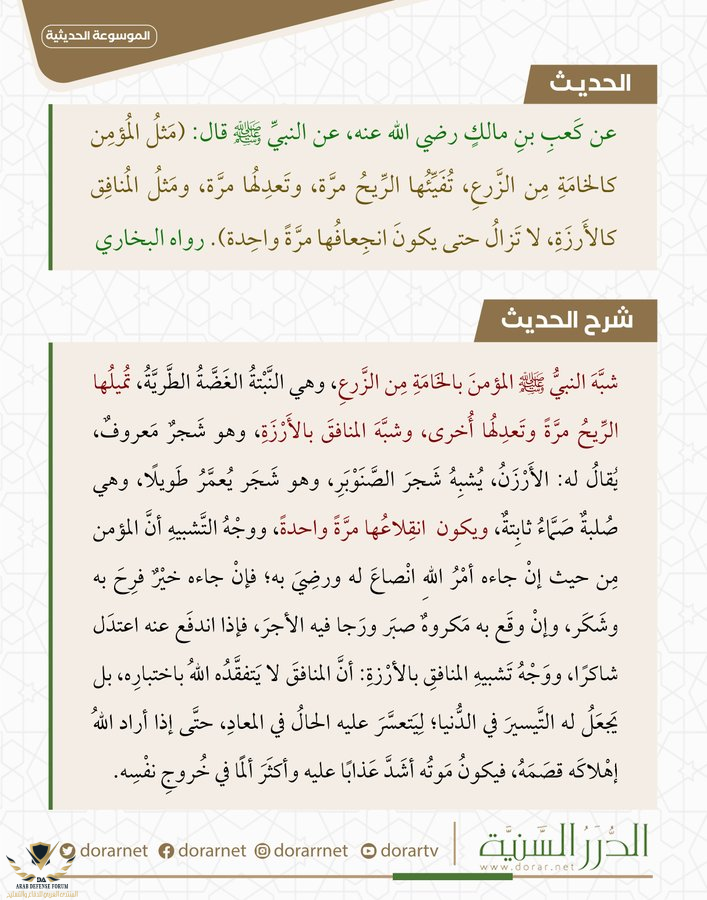 الموسوعة الحديثية
الحديث
عن كَعبِ بنِ مالكٍ رضي الله عنه، عن النبيِّ ﷺ قال: (مَثلُ المُؤمِن
كالخامَةِ مِن الزَّرعِ، تُفَيِّئُها الرِّيحُ مرَّة، وتَعدِلُها مرَّة، ومَثلُ المُنافِق
كالأَرزَةِ، لا تَزالُ حتى يكونَ انجِعافُها مرَّةً واحِدة). رواه البخاري
شرح الحديث
شبَّهَ النبيُّ ﷺ المؤمنَ بالخَامَةِ مِن الزَّرعِ، وهي النَّبْتةُ الغَضَّةُ الطَّريَّةُ، تُميلُها
الرِّيحُ مرَّةً وتَعدِلُها أُخرى، وشبَّهَ المنافقَ بالأَرْزَةِ، وهو شَجرٌ مَعروفٌ،
يُقالُ له: الأَرْزَنُ، يُشبِهُ شَجرَ الصَّنَوْبَرِ، وهو شَجَر يُعمَّرُ طَويلًا، وهي
صُلبةٌ صَمَّاءُ ثابِتةٌ، ويكون انقِلاعُها مرَّةً واحدةً، ووجْهُ التَّشبيهِ أنَّ المؤمن
مِن حيث إنْ جاءه أمْرُ اللهِ انْصاعَ له ورضِيَ به؛ فإنْ جاءه خيْرٌ فرِحَ به
وشَكَر، وإنْ وقَع به مَكروهٌ صبَر ورَجا فيه الأجرَ، فإذا اندفَع عنه اعتدَل
شاكرًا، ووَجْهُ تَشبيهِ المنافقِ بالأرْزةِ: أنَّ المنافقَ لا يَتفقَّدُه اللهُ باختبارِه، بل
يَجعَلُ له التَّيسيرَ في الدُّنيا؛ لِيَتعسَّرَ عليه الحالُ في المعادِ، حتَّى إذا أراد اللهُ
إهْلاكَه قصَمَهُ، فيكونُ مَوتُه أشدَّ عَذابًا عليه وأكثَرَ ألمًا في خُروجِ نفْسِه.
الدُّرَرُ السَّنِيَّة
www.dorar.net
dorarnet dorarnet dorarrnet dorartv
DA
ARAB DEFENSE FORUM
المنتدى العربي للدفاع والتسليح